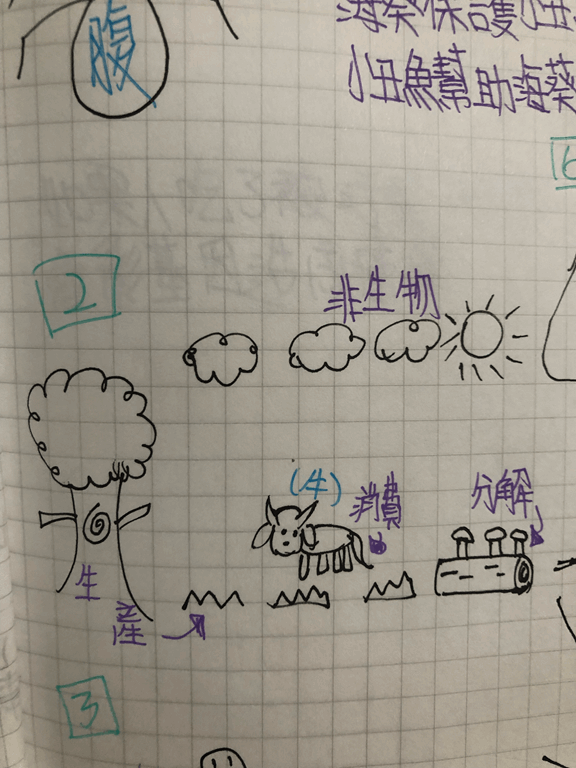 腹
海葵保護小丑
小丑魚幫助海葵
6
2
非生物
(牛)
消費
分解
生
產
3